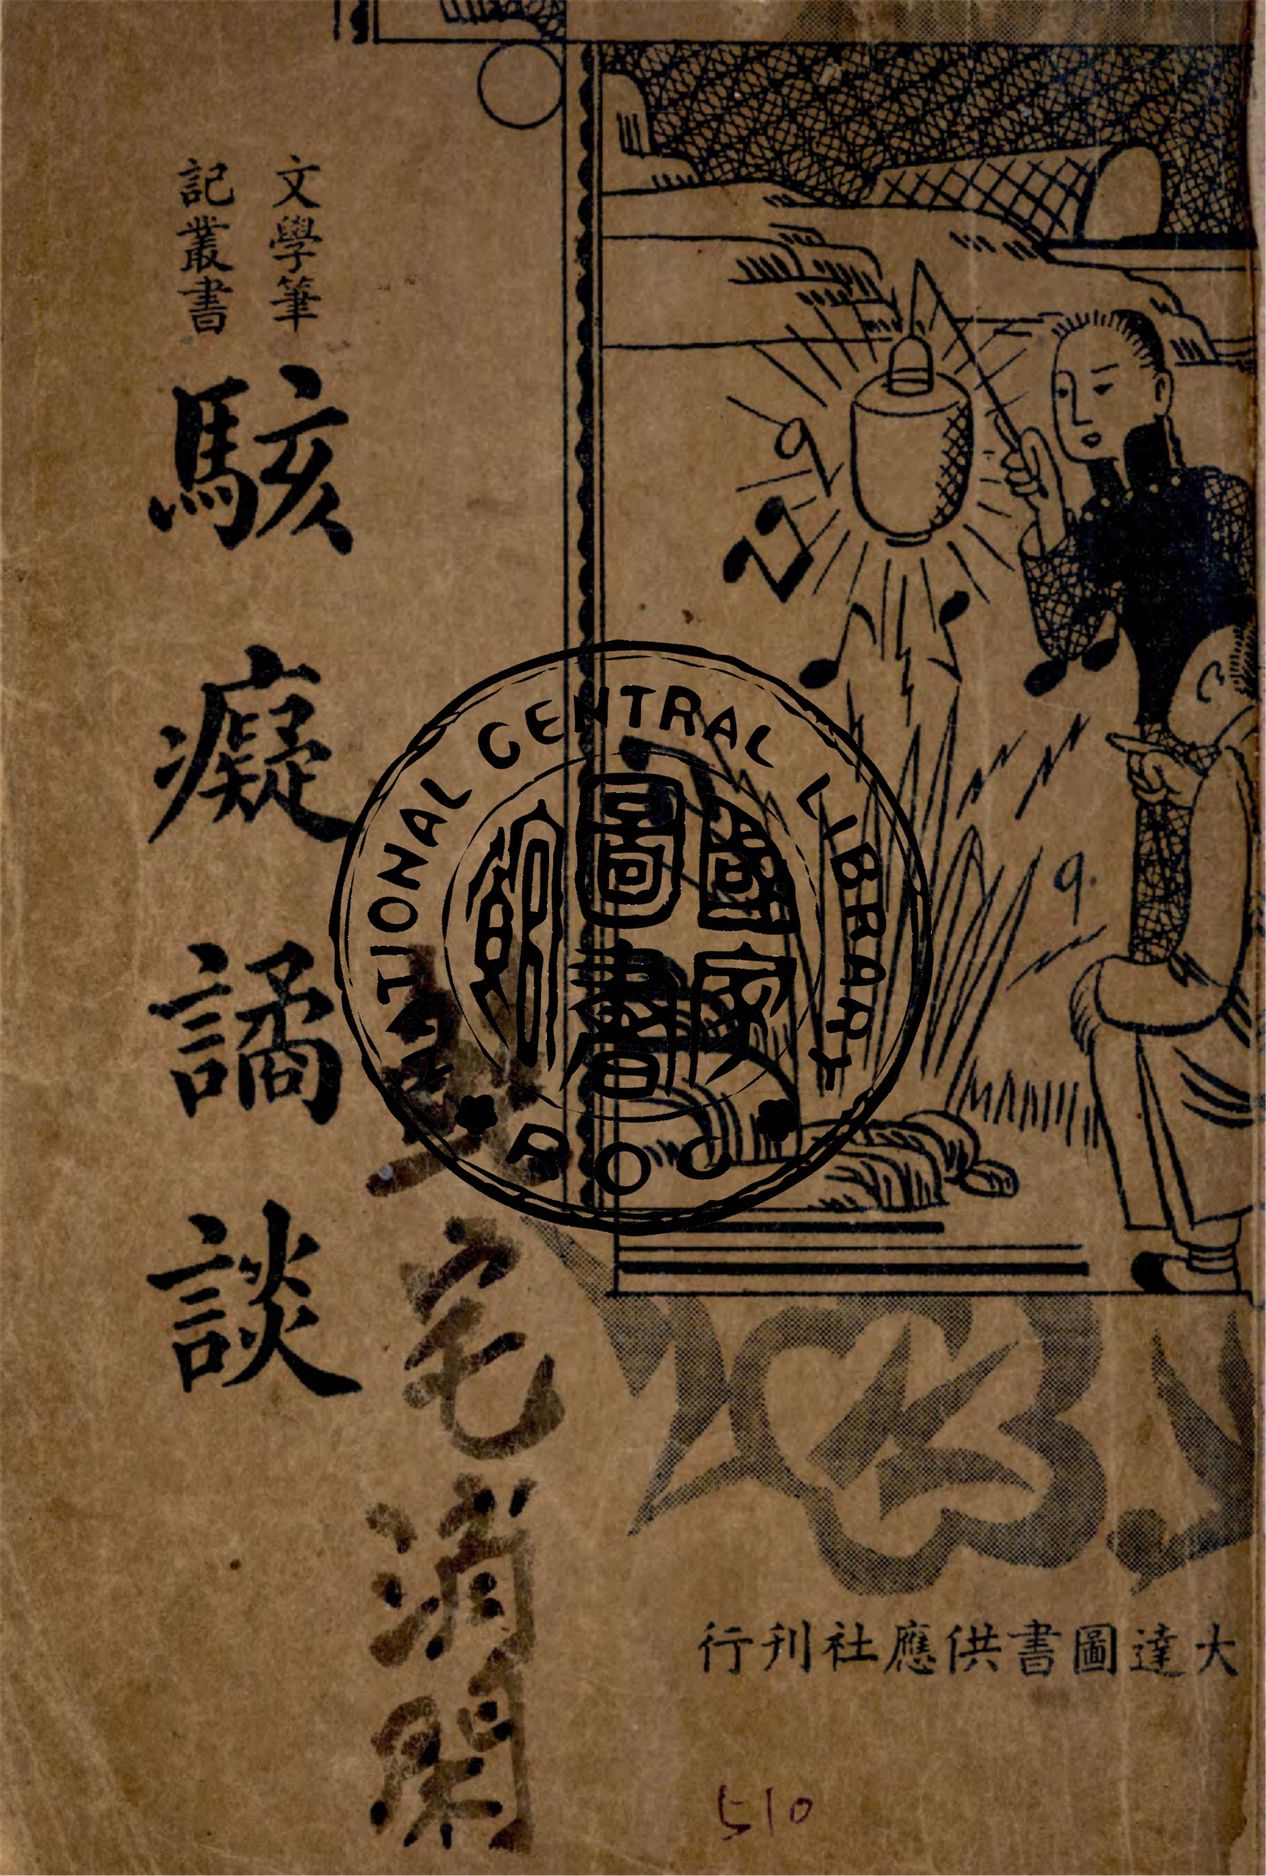 文學筆
記叢書
駭癡譎談
宅消閑
NATIONAL CENTRAL LIBRARY
國家
圖書
館
R O C
大達圖書供應社刊行
510